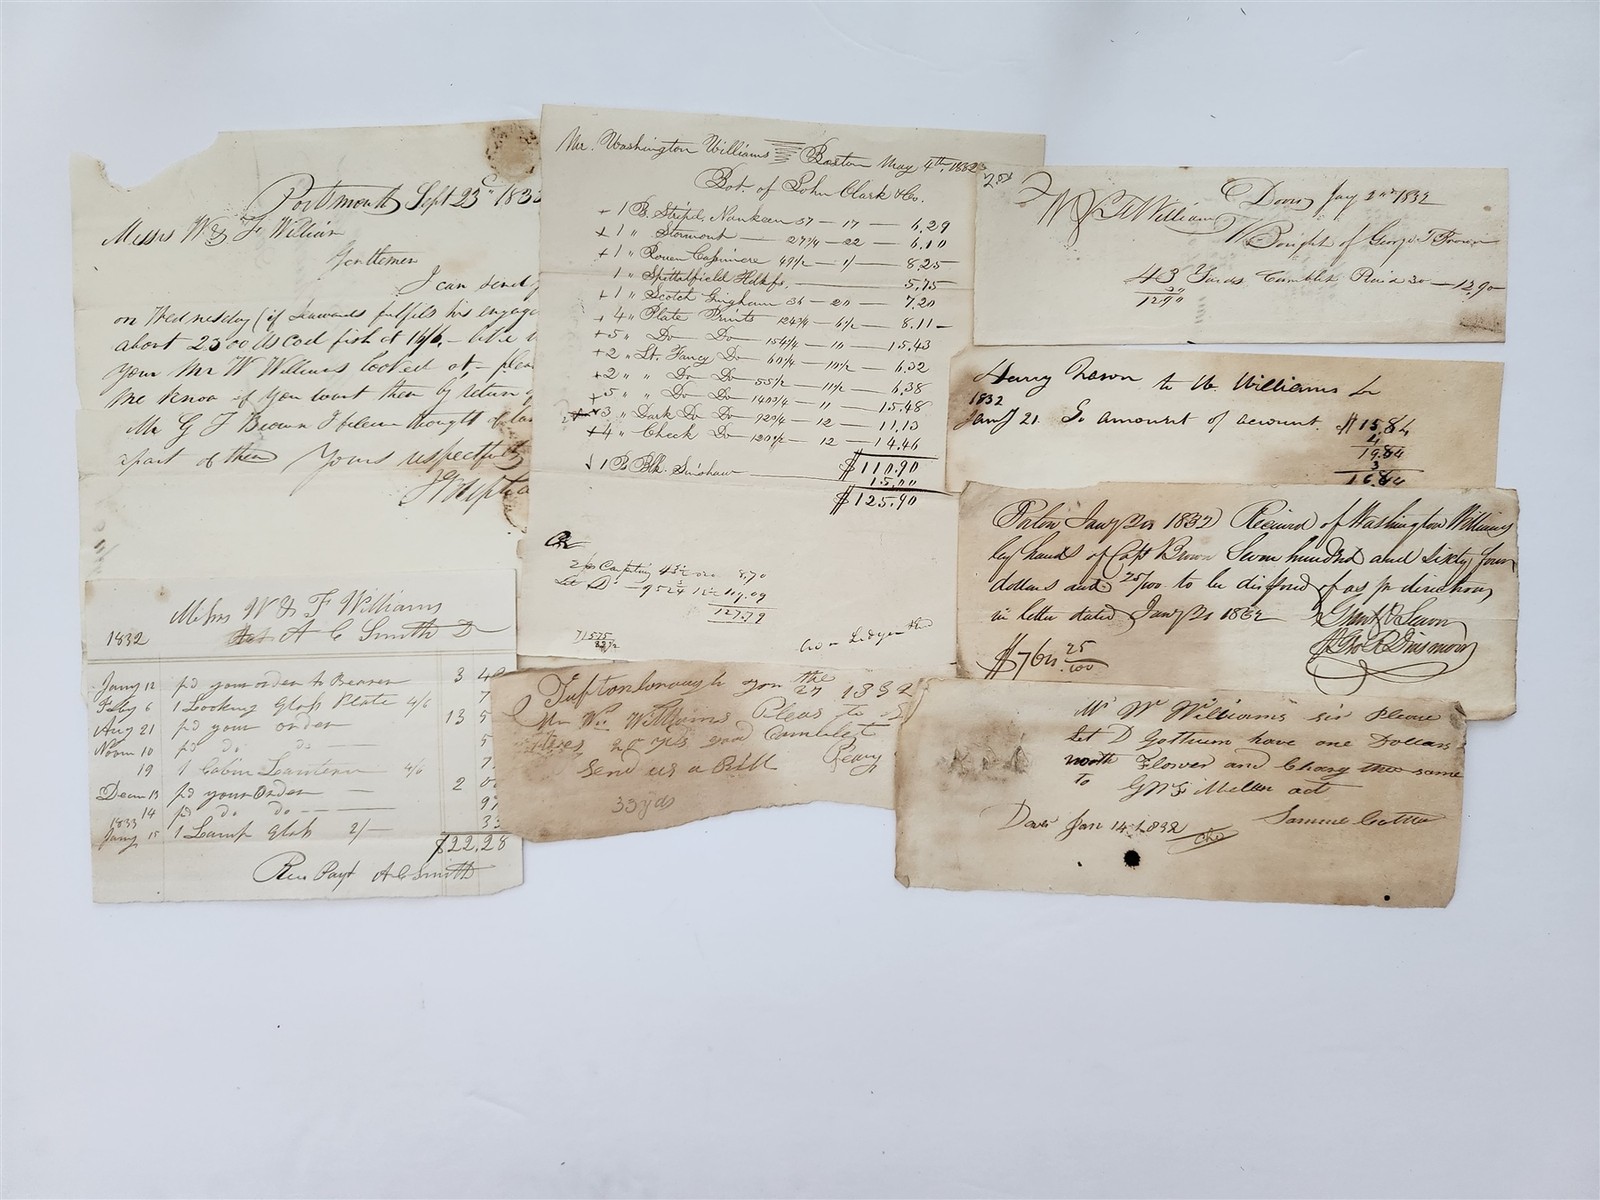 Portsmouth Sept 23d 183
Messrs W & F William
Gentlemen
I can send y
on Wednesday (if Leawards fulfils his engage
about 2500 lbs cod fish at 16/6.
your Mr W Williams looked at, - plea
me know if you want them by return
Mr G T Brown I believe thought of
apart of them Yours respectfully
Messrs W & F Williams
1832 A C Smith Dr
Jany 12 pd your order to Bearer 3 4
Feby 6 1 Looking Glass Plate 4/6 7
Aug 21 pd your order 13 5
Novm 10 pd do. do. 5
19 1 Cabin Lantern 4/6 7
Decm 13 pd your Order 2 0
14 pd do. do. 97
1833
Jany 15 1 Lamp Glass 2/- 33
$22.28
Recd Payt A C Smith
Mr. Washington Williams Boston May 4th. 1832
Bot. of John Clark & Co.
+ 1 P. Stripd. Nankeen 37 — 17 — 6.29
+ 1 " Stormont — 27 3/4 — 22 — 6.10
+ 1 " Rouen Cassimere 49 1/2 — 1/ — 8.25
1 " Spittalfield Hdkfs. — 5.75
+ 1 " Scotch Gingham 36 — 20 — 7.20
+ 4 " Plate Prints 124 3/4 — 6 1/2 — 8.11
+ 5 " Do Do 154 1/4 — 10 — 15.43
+ 2 " Lt. Fancy Do 60 1/4 — 10 1/2 — 6.32
+ 2 " " Do Do 55 1/2 — 11 1/2 — 6.38
+ 5 " " Do Do 140 3/4 — 11 — 15.48
+ 3 " Dark Do Do 92 3/4 — 12 — 11.13
+ 4 " Check Do 120 1/2 — 12 — 14.46
$110.90
√ 1 Ps Blk. Sinshaw — 15.00
$125.90
2 ps Carpeting 43 1/2 20 8.70
127.79
Tuftonborough Jan the 27 1832
Mr Wm Williams Pleas to
yds good Camblet
Send us a Bill
33 yds
2nd
Dover Jany 2nd 1832
Mr W Williams
Bought of George T Brown
43 Yards Camblet Plaid 30 — 12.90
30
12.90
Henry Nason to W. Williams Dr
1832
Jany 21. To amount of acount. $15.84
4
19.84
3
16.84
Jany 20 1832 Received of Washington Williams
by hands of Capt Brown Seven hundred and Sixty four
dollars and 25/100 to be disposed of as pr directions
in letter dated Jany 20 1832
$764 25/100
Mr Wm Williams sir Please
Let D Gottum have one Dollars
worth Flower and Charg the same
to G N F Mellen act
Dover Jan 14 1832